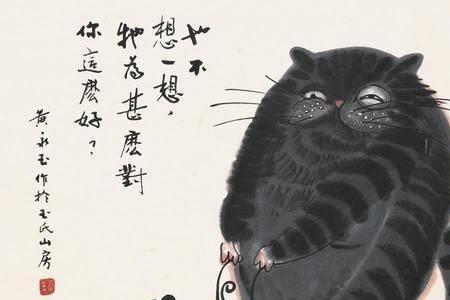 也不
想一想，
牠為甚麼對
你這麼好？
黃永玉作於玉氏山房